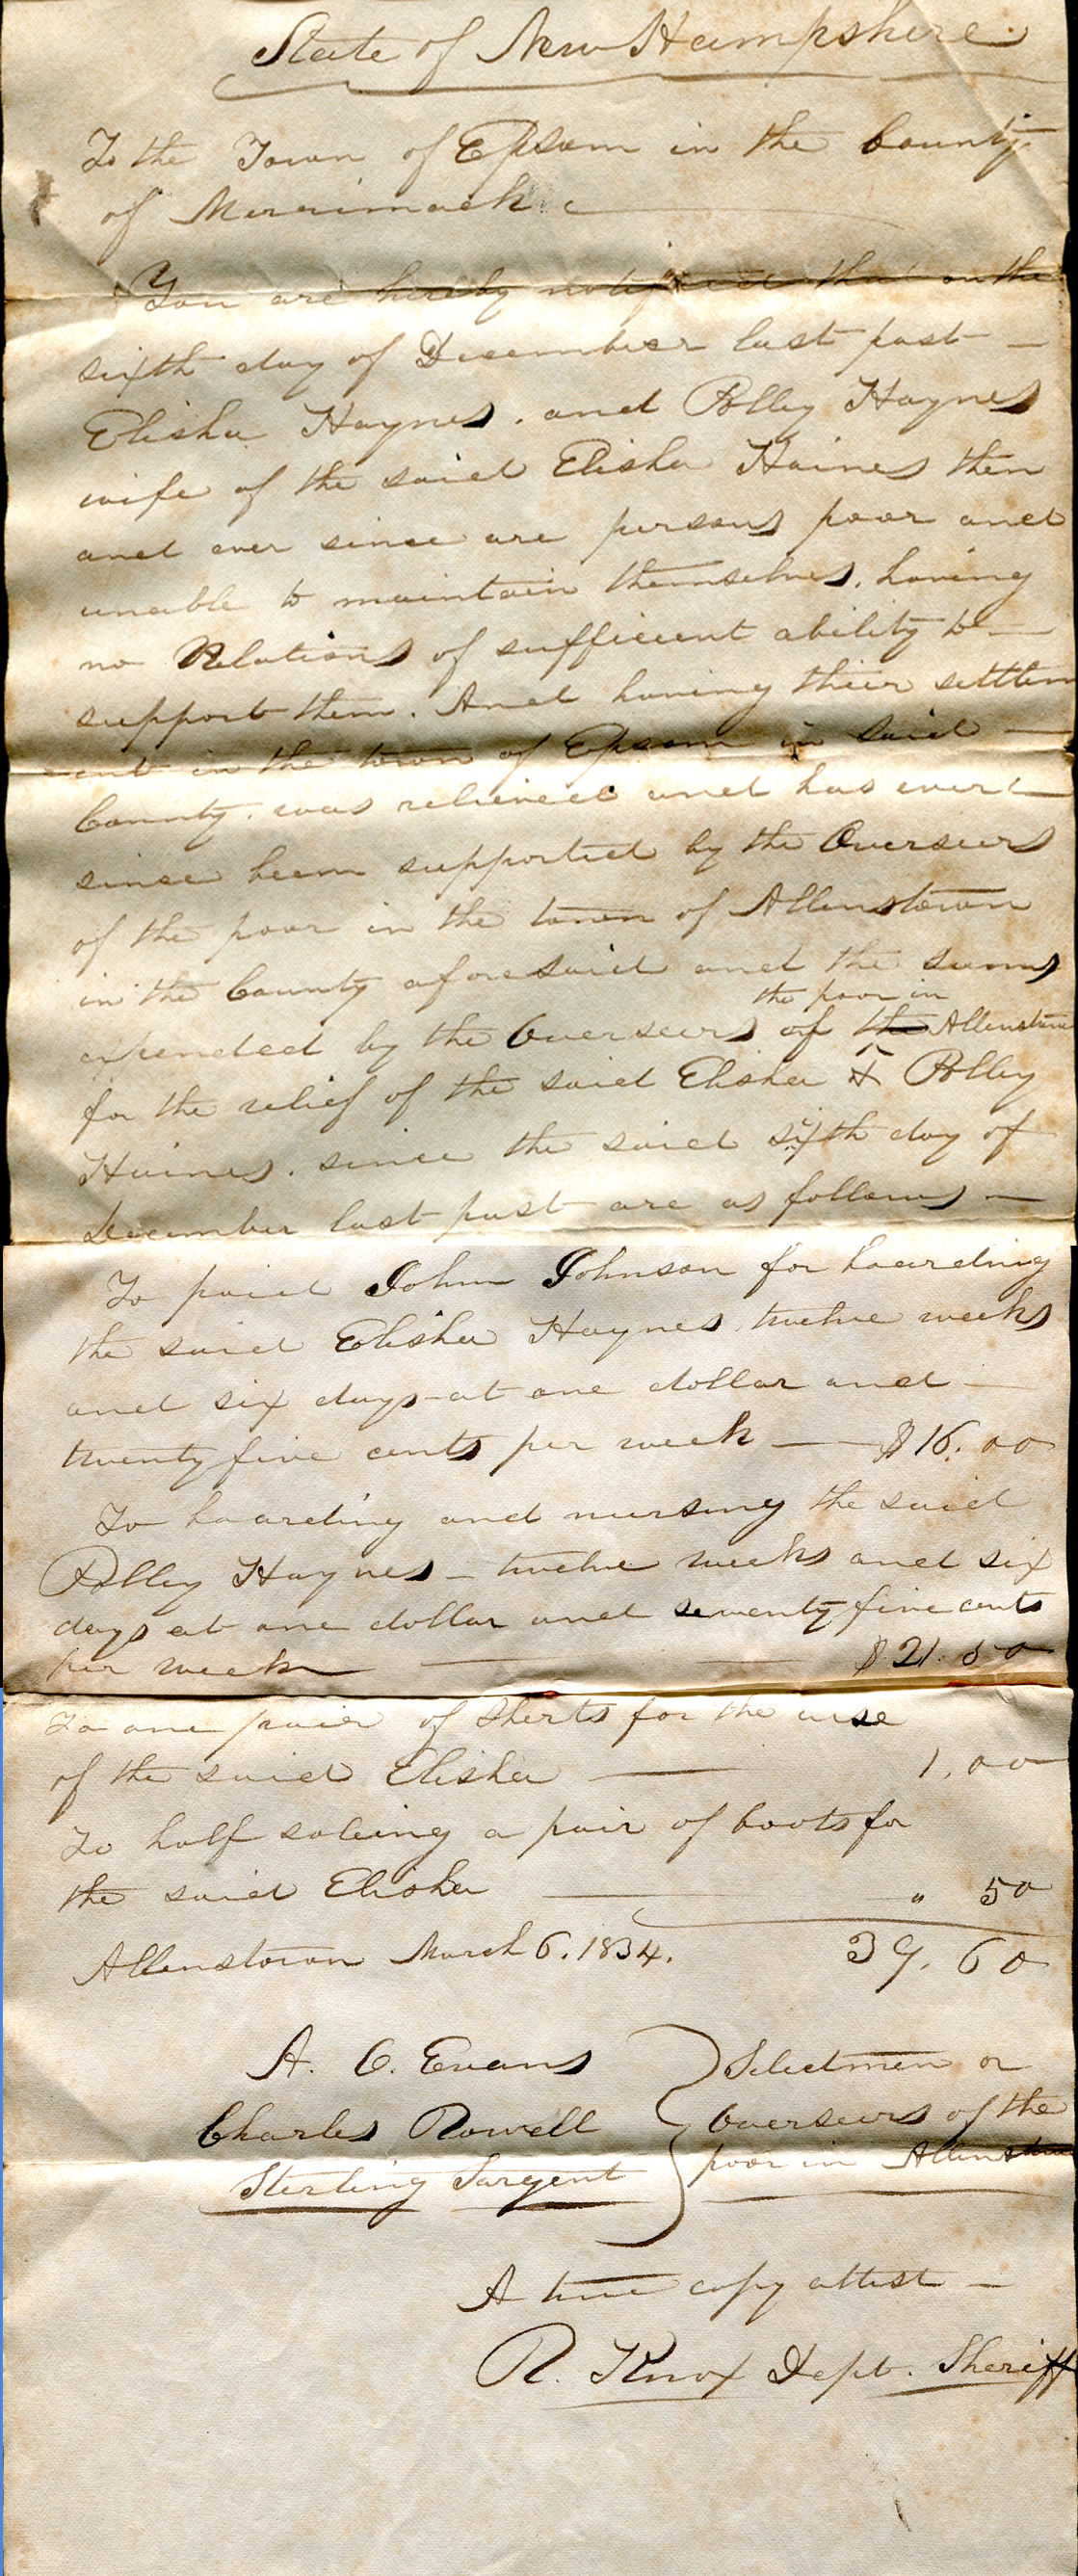 State of New Hampshire
To the Town of Epsom in the County
of Merrimack
You are hereby notified that on the
sixth day of December last past —
Elisha Haynes, and Polley Haynes
wife of the said Elisha Haines then
and ever since are persons poor and
unable to maintain themselves, having
no Relations of sufficient ability to —
support them. And having their settlem
-ent in the town of Epsom in said —
County. was relieved and has ever —
since been supported by the Overseers
of the poor in the town of Allenstown
in the County aforesaid and the sums
the poor in
expended by the Overseers of the Allenstown
for the relief of the said Elisha & Polley
Haines. since the said sixth day of
December last past are as follows —
To paid John Johnson for boarding
the said Elisha Haynes, twelve weeks
and six days at one dollar and —
twenty five cents per week — $16.00
To boarding and nursing the said
Polley Haynes — twelve weeks and six
days at one dollar and seventy five cents
per week — $21.50
To one pair of Sherts for the use
of the said Elisha — 1.00
To half soleing a pair of boots for
the said Elisha — " 50
Allenstown March 6. 1834. 39.60
A. C. Evans } Selectmen or
Charles Rowell } Overseers of the
Sterling Sargent } poor in Allenstown
A true copy attest —
R. Knox Dept. Sheriff